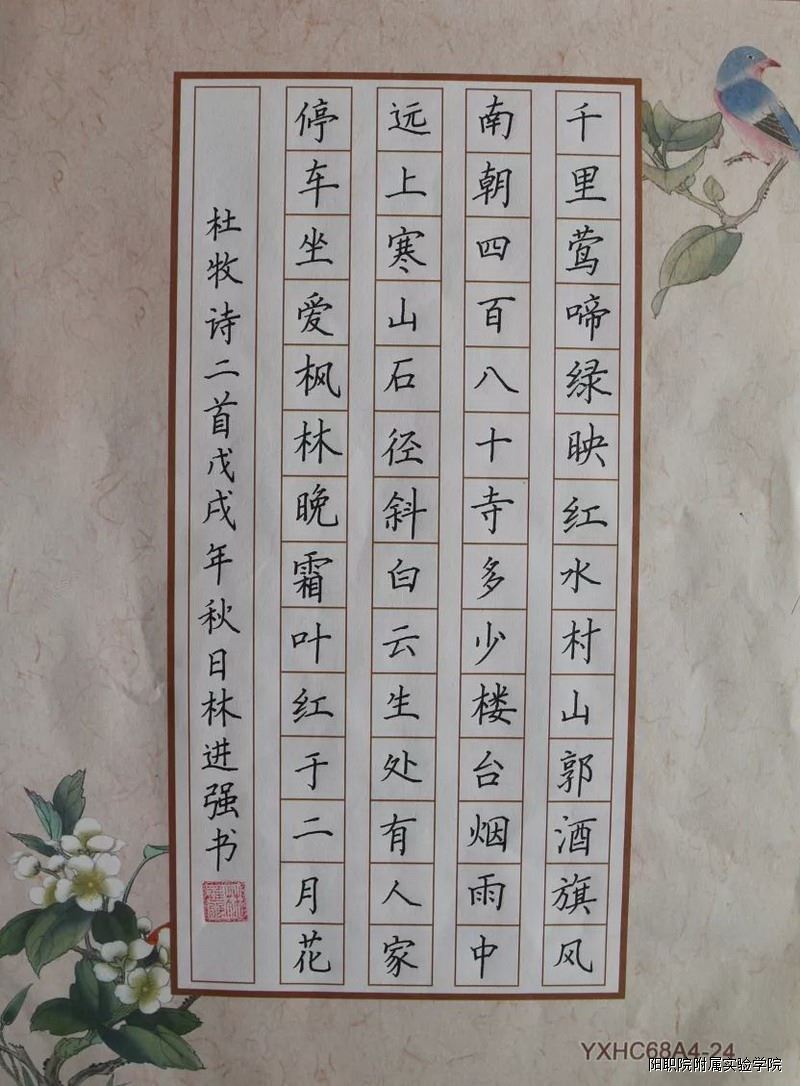 千里莺啼绿映红水村山郭酒旗风
南朝四百八十寺多少楼台烟雨中
远上寒山石径斜白云生处有人家
停车坐爱枫林晚霜叶红于二月花
杜牧诗二首戊戌年秋日林进强书
YXHC68A4-24
阳职院附属实验学院